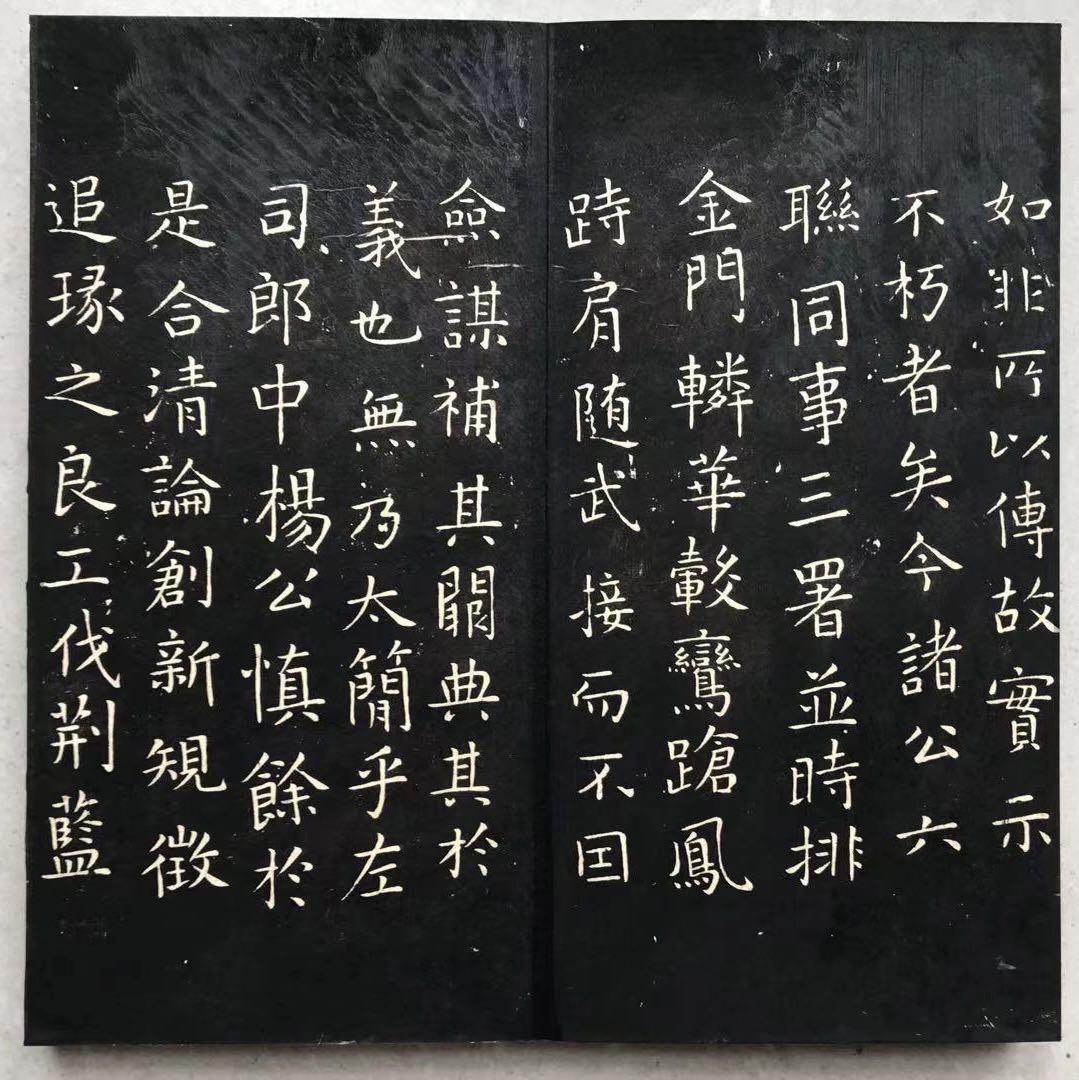 如非所以傳故實示
不朽者矣今諸公六
聯同事三署並時排
金門轔華轂鸞蹌鳳
跱肩随武接而不因
僉謀補其闕典其於
義也無乃太簡乎左
司郎中楊公慎餘於
是合清論創新規徵
追琢之良工伐荊藍